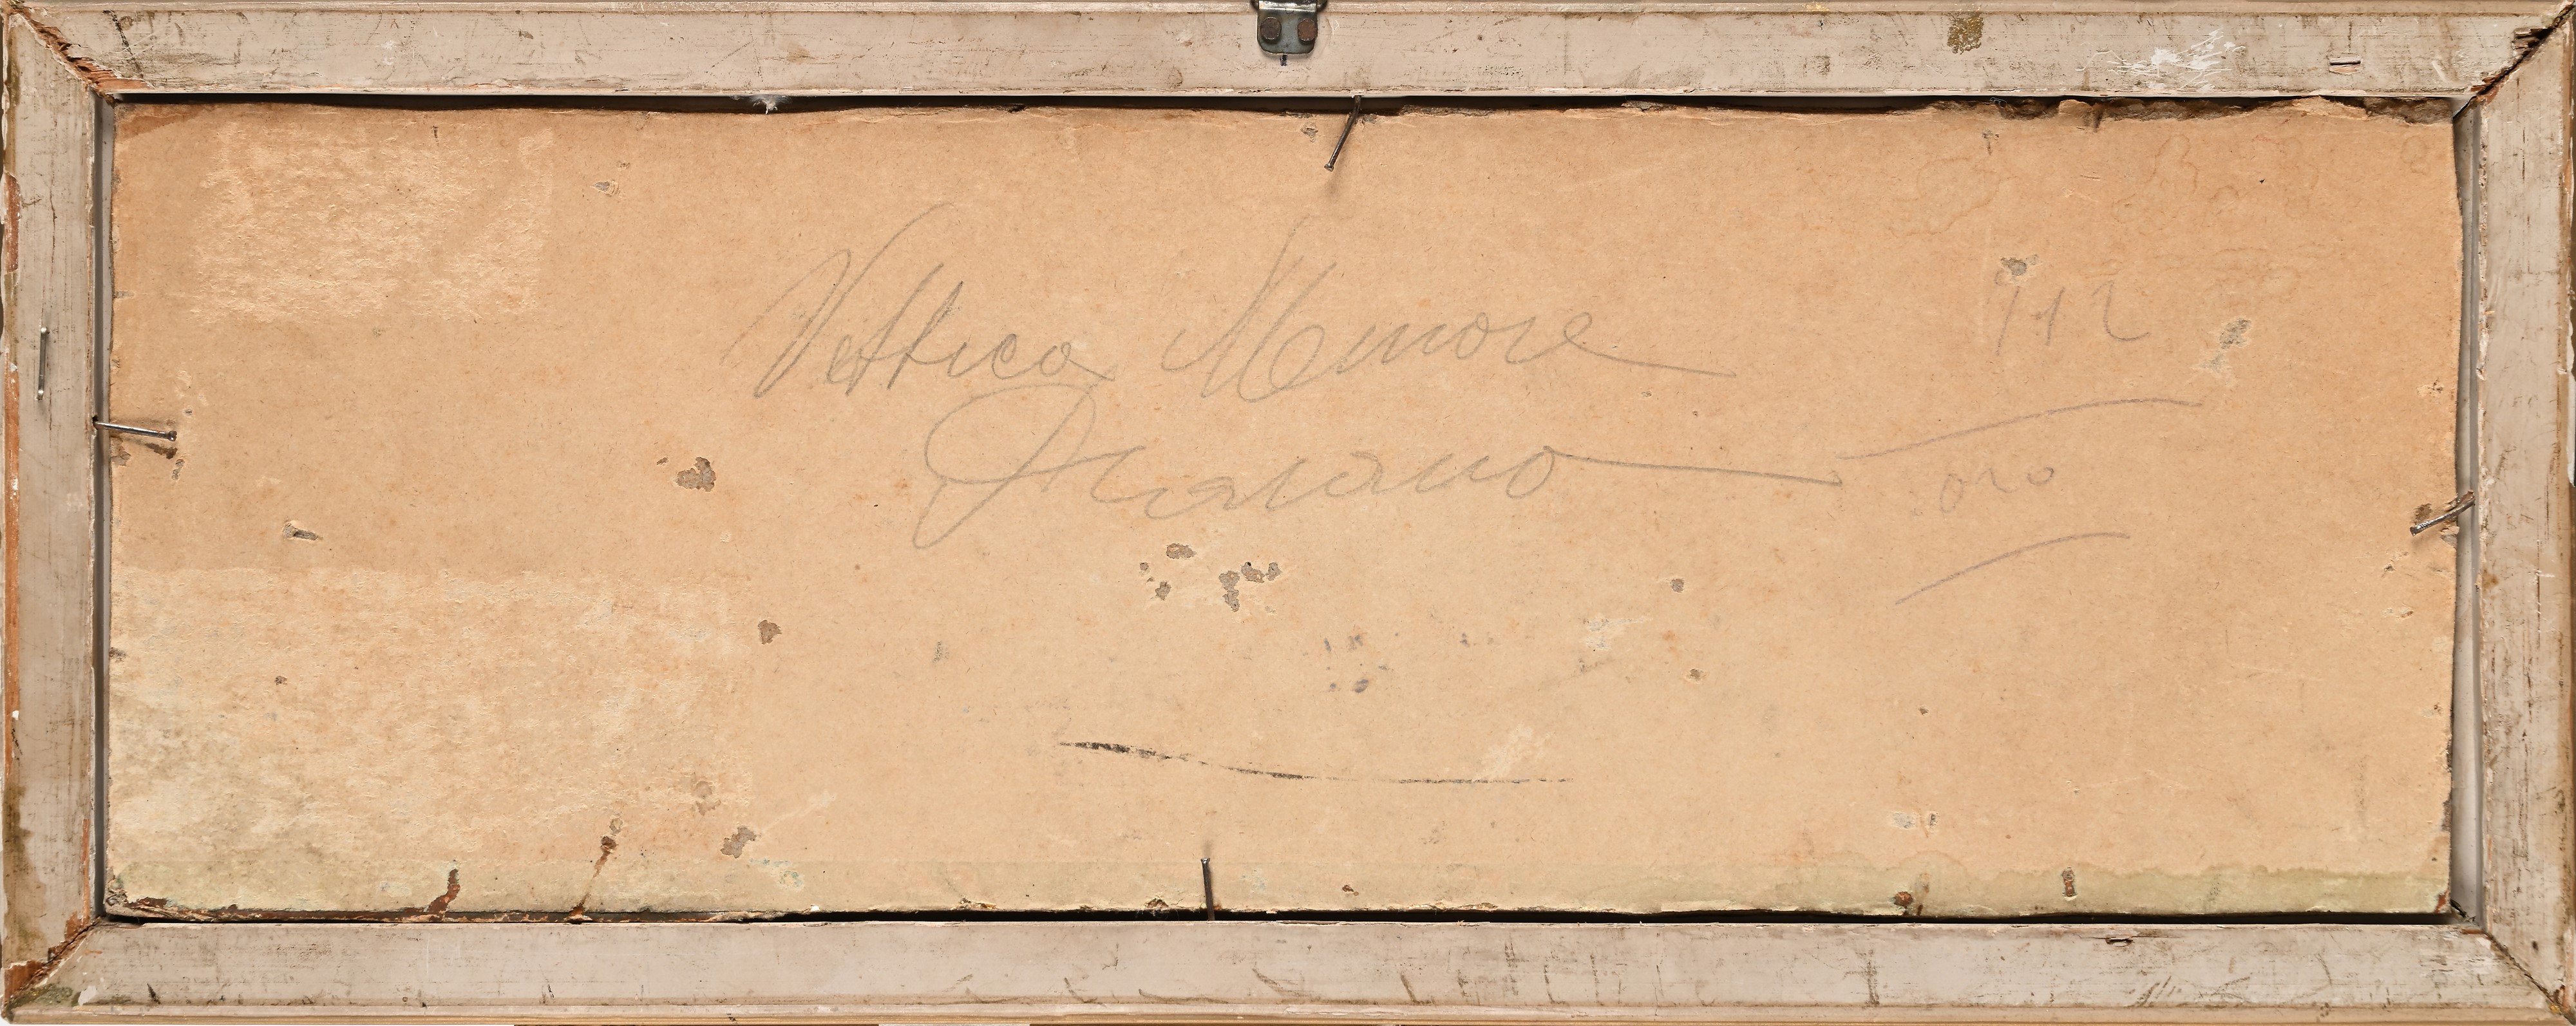 Vettica Minore
Praiano
912
oro